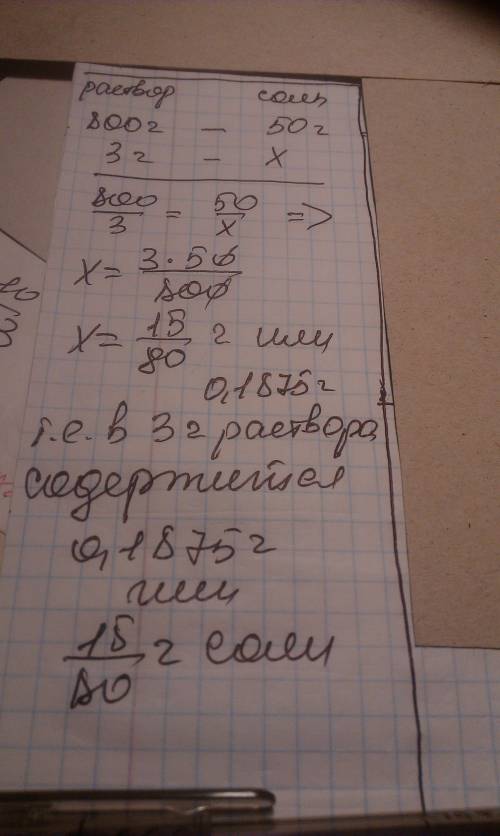 раствор соль
800г — 50г
3г — х
800/3 = 50/х =>
х = 3·50/800
х = 15/80 г или
0,1875г
т.е. в 3г раствора
содержится
0,1875г
или
15/80 г соли